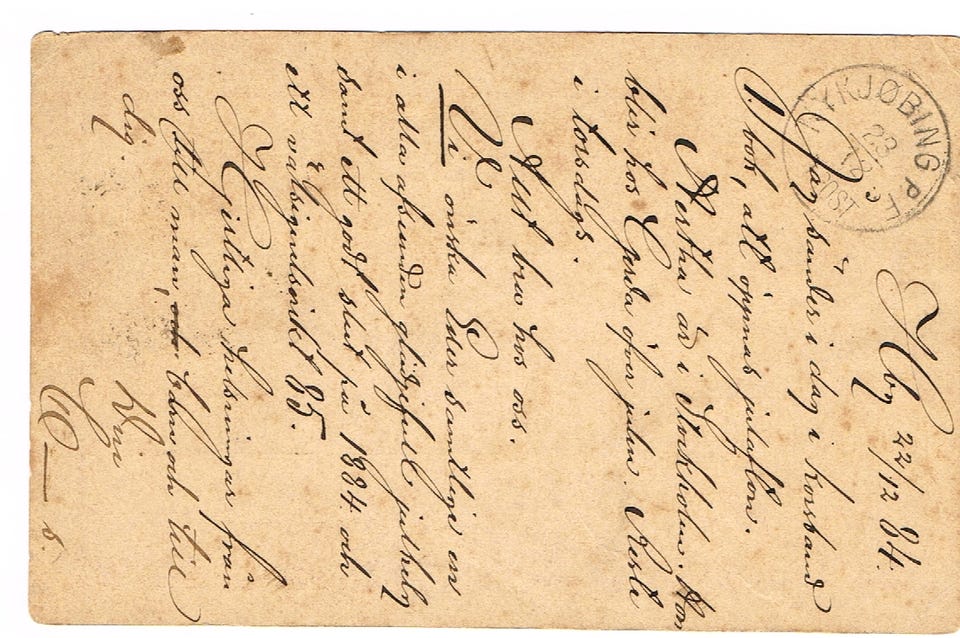 NYKJØBING P.F.
23 12
Hby 22/12 84.
Jag sänder i dag i korsband
1 bok, att öppnas julafton.
Hertha är i Stockholm. Hon
blir hos Gerda öfver julen. Reste
i torsdags.
Allt bra hos oss.
Vi önska Eder samtliga en
i alla afseenden glädjefull julhelg
samt ett godt slut på 1884 och
ett välsignelserikt 85.
Hjertliga helsningar från
oss till man, och till
dig.
Din